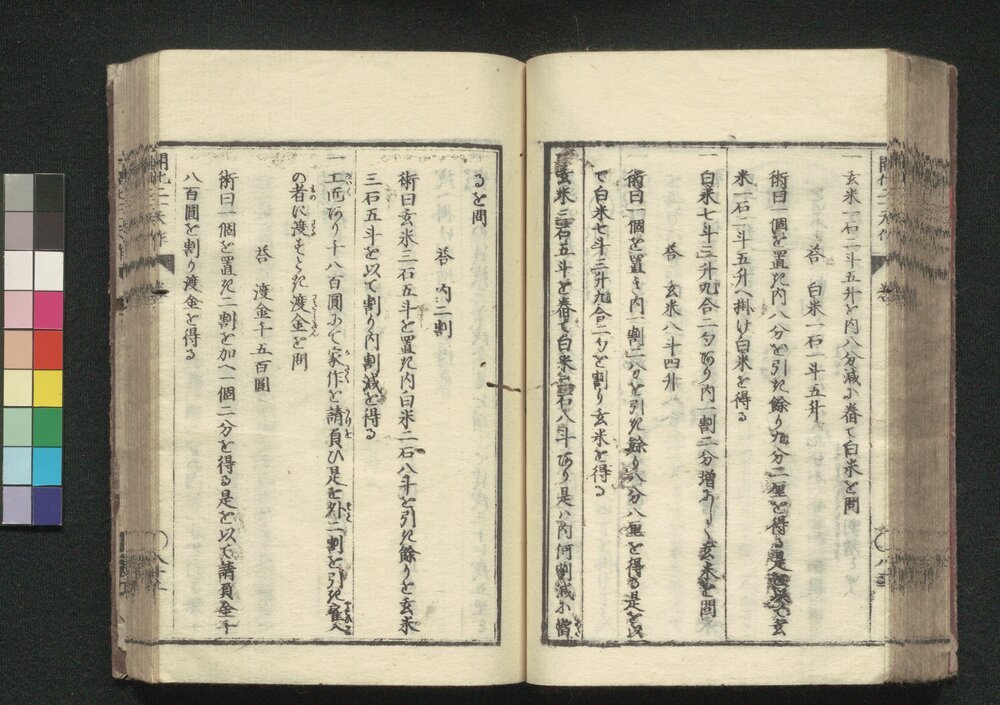 一玄米一石二斗五升を内八分減ふ舂て白米を問
答　白米一石一斗五升
術曰一個を置き内八分を引き餘り九分二厘を得る是を以て玄
米一石二斗五升へ掛け白米を得る
一白米七斗三升九合二勺あり内一割二分増あしく玄米を問
答　玄米八斗四升
術曰一個を置き内一割二分を引き餘り八分八厘を得る是を以
て白米七斗三升九合二勺を割り玄米を得る
玄米三石五斗を舂て白米二石八斗あり是ハ内何割減ふ當
るを問
答　内二割
術曰玄米三石五斗を置き内白米二石八斗を引き餘りを玄米
三石五斗を以て割り内割減を得る
一工匠あり千八百圓ふて家作を請負ひ是を外二割を引き雇人
の者に渡もらき渡金を問
答　渡金千五百圓
術曰一個を置き二割を加へ一個二分を得る是を以て請負金千
八百圓を割り渡金を得る